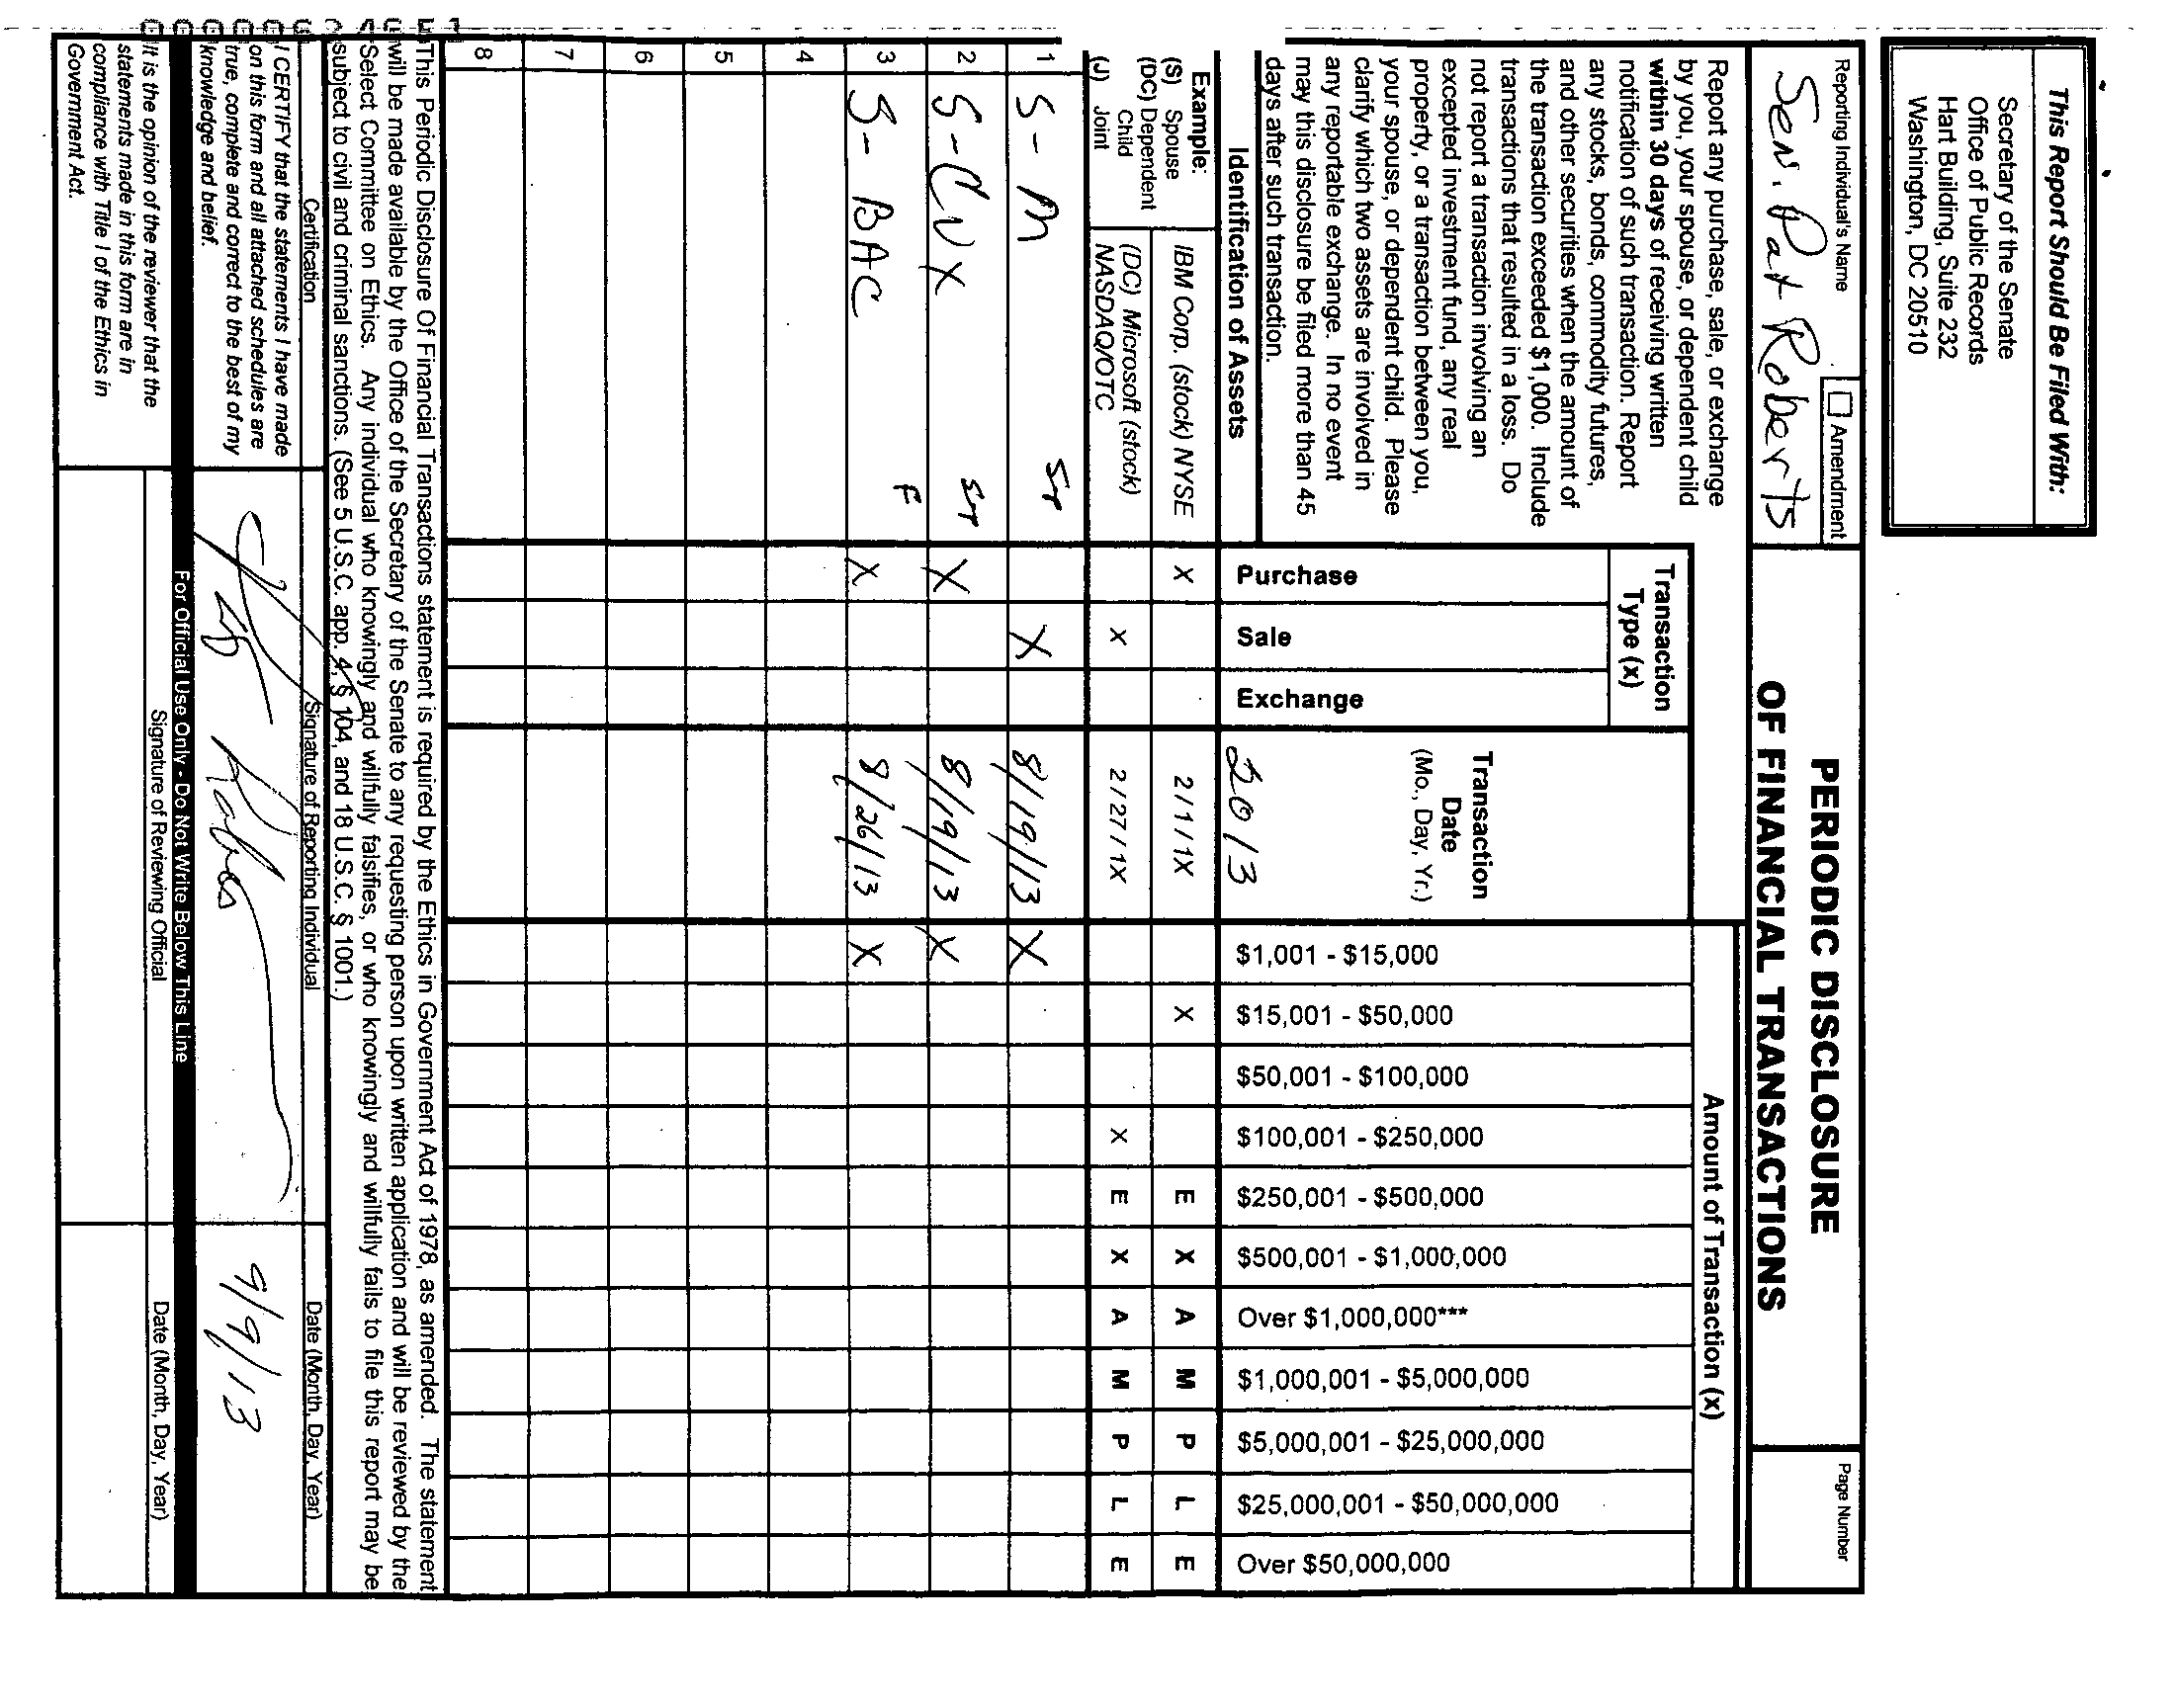 This Report Should Be Filed With:
Secretary of the Senate
Office of Public Records
Hart Building, Suite 232
Washington, DC 20510
Reporting Individual's Name
Amendment
Sen. Pat Roberts
PERIODIC DISCLOSURE
OF FINANCIAL TRANSACTIONS
Page Number
Report any purchase, sale, or exchange
by you, your spouse, or dependent child
within 30 days of receiving written
notification of such transaction. Report
any stocks, bonds, commodity futures,
and other securities when the amount of
the transaction exceeded $1,000. Include
transactions that resulted in a loss. Do
not report a transaction involving an
excepted investment fund, any real
property, or a transaction between you,
your spouse, or dependent child. Please
clarify which two assets are involved in
any reportable exchange. In no event
may this disclosure be filed more than 45
days after such transaction.
Identification of Assets
Transaction
Type (x)
Purchase
Sale
Exchange
Transaction
Date
(Mo., Day, Yr.)
2013
Amount of Transaction (x)
$1,001 - $15,000
$15,001 - $50,000
$50,001 - $100,000
$100,001 - $250,000
$250,001 - $500,000
$500,001 - $1,000,000
Over $1,000,000***
$1,000,001 - $5,000,000
$5,000,001 - $25,000,000
$25,000,001 - $50,000,000
Over $50,000,000
Example:
(S) Spouse
(DC) Dependent
Child
(J) Joint
IBM Corp. (stock) NYSE X 2/1/1X X E X A M P L E
(DC) Microsoft (stock)
NASDAQ/OTC X 2/27/1X X E X A M P L E
1 S- M X 8/19/13 X
2 S- CVX X 8/19/13 X
3 S- BAC F X 8/26/13 X
4
5
6
7
8
This Periodic Disclosure Of Financial Transactions statement is required by the Ethics in Government Act of 1978, as amended. The statement
will be made available by the Office of the Secretary of the Senate to any requesting person upon written application and will be reviewed by the
Select Committee on Ethics. Any individual who knowingly and willfully falsifies, or who knowingly and willfully fails to file this report may be
subject to civil and criminal sanctions. (See 5 U.S.C. app. 4, § 104, and 18 U.S.C. § 1001.)
Certification
Signature of Reporting Individual
Date (Month, Day, Year)
I CERTIFY that the statements I have made
on this form and all attached schedules are
true, complete and correct to the best of my
knowledge and belief.
9/9/13
For Official Use Only - Do Not Write Below This Line
It is the opinion of the reviewer that the
statements made in this form are in
compliance with Title I of the Ethics in
Government Act.
Signature of Reviewing Official
Date (Month, Day, Year)